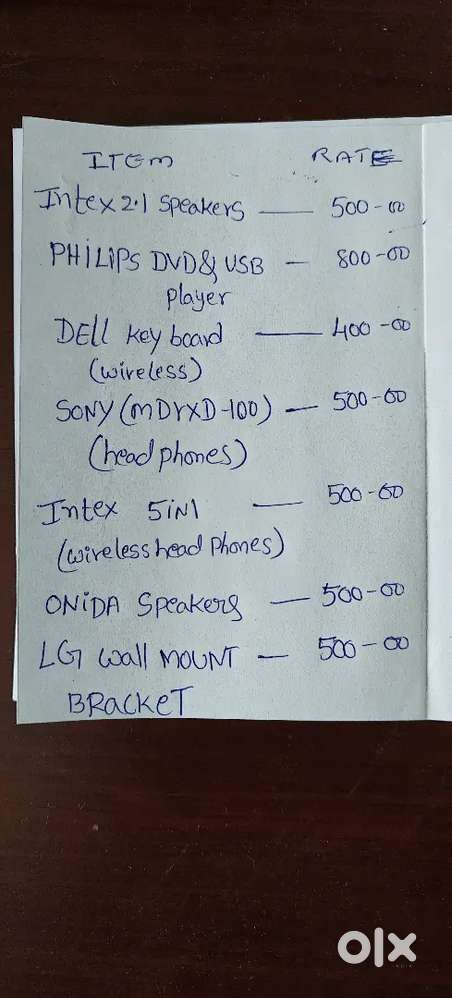 ITEM RATE
Intex 2.1 Speakers — 500-00
PHILIPS DVD & USB — 800-00
player
DELL Key board — 400-00
(wireless)
SONY (MDRXD-100) — 500-00
(head phones)
Intex 5iN1 — 500-00
(wireless head Phones)
ONiDA Speakers — 500-00
LG wall MOUNT — 500-00
BRacKET
olx
INDIA